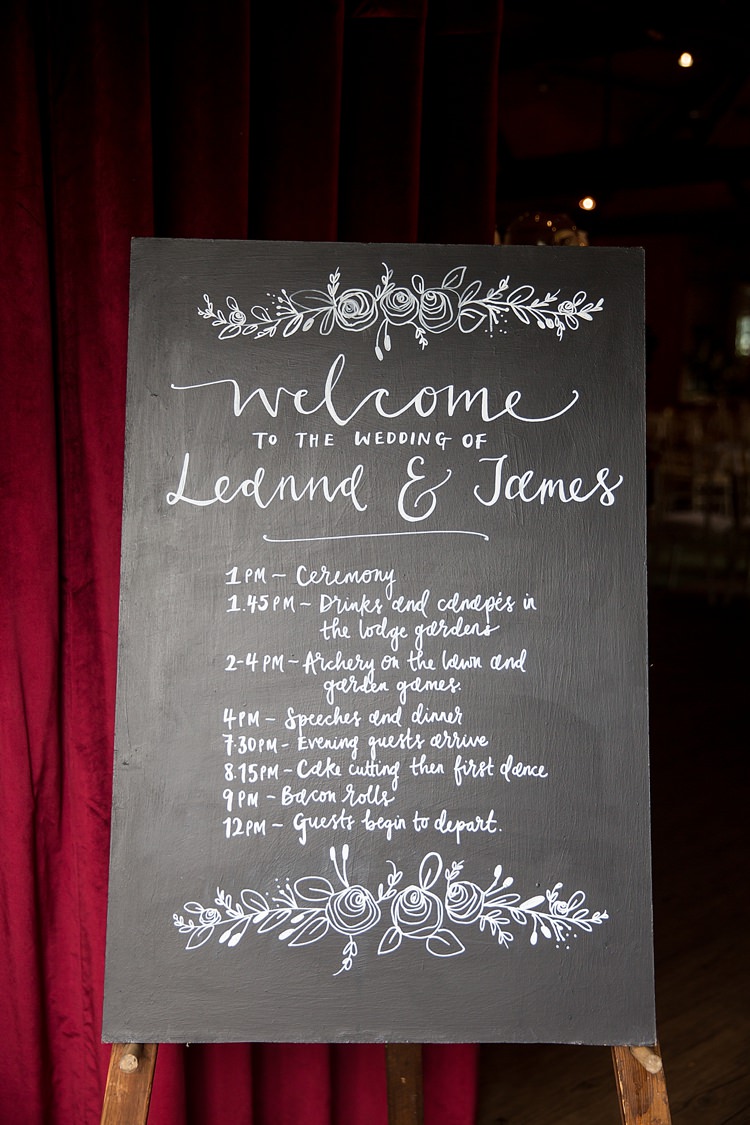 welcome
TO THE WEDDING OF
Leanna & James
1PM – Ceremony
1.45PM – Drinks and canapés in
the lodge gardens
2-4PM – Archery on the lawn and
garden games.
4PM – Speeches and dinner
7.30PM – Evening guests arrive
8.15PM – Cake cutting then first dance
9PM – Bacon rolls
12PM – Guests begin to depart.